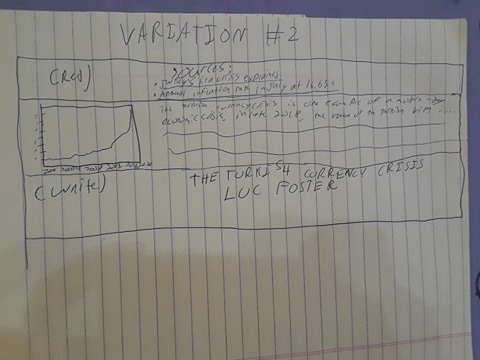 VARIATION #2
(Red)
Sources:
• Turkey's lira crisis explained
• Annual inflation rate in July at 16.65%
The Turkish currency crisis is one example of a modern-day
economic crisis, in late 2018, the value of the Turkish lira ....
(White)
THE TURKISH CURRENCY CRISIS
LUC FOSTER